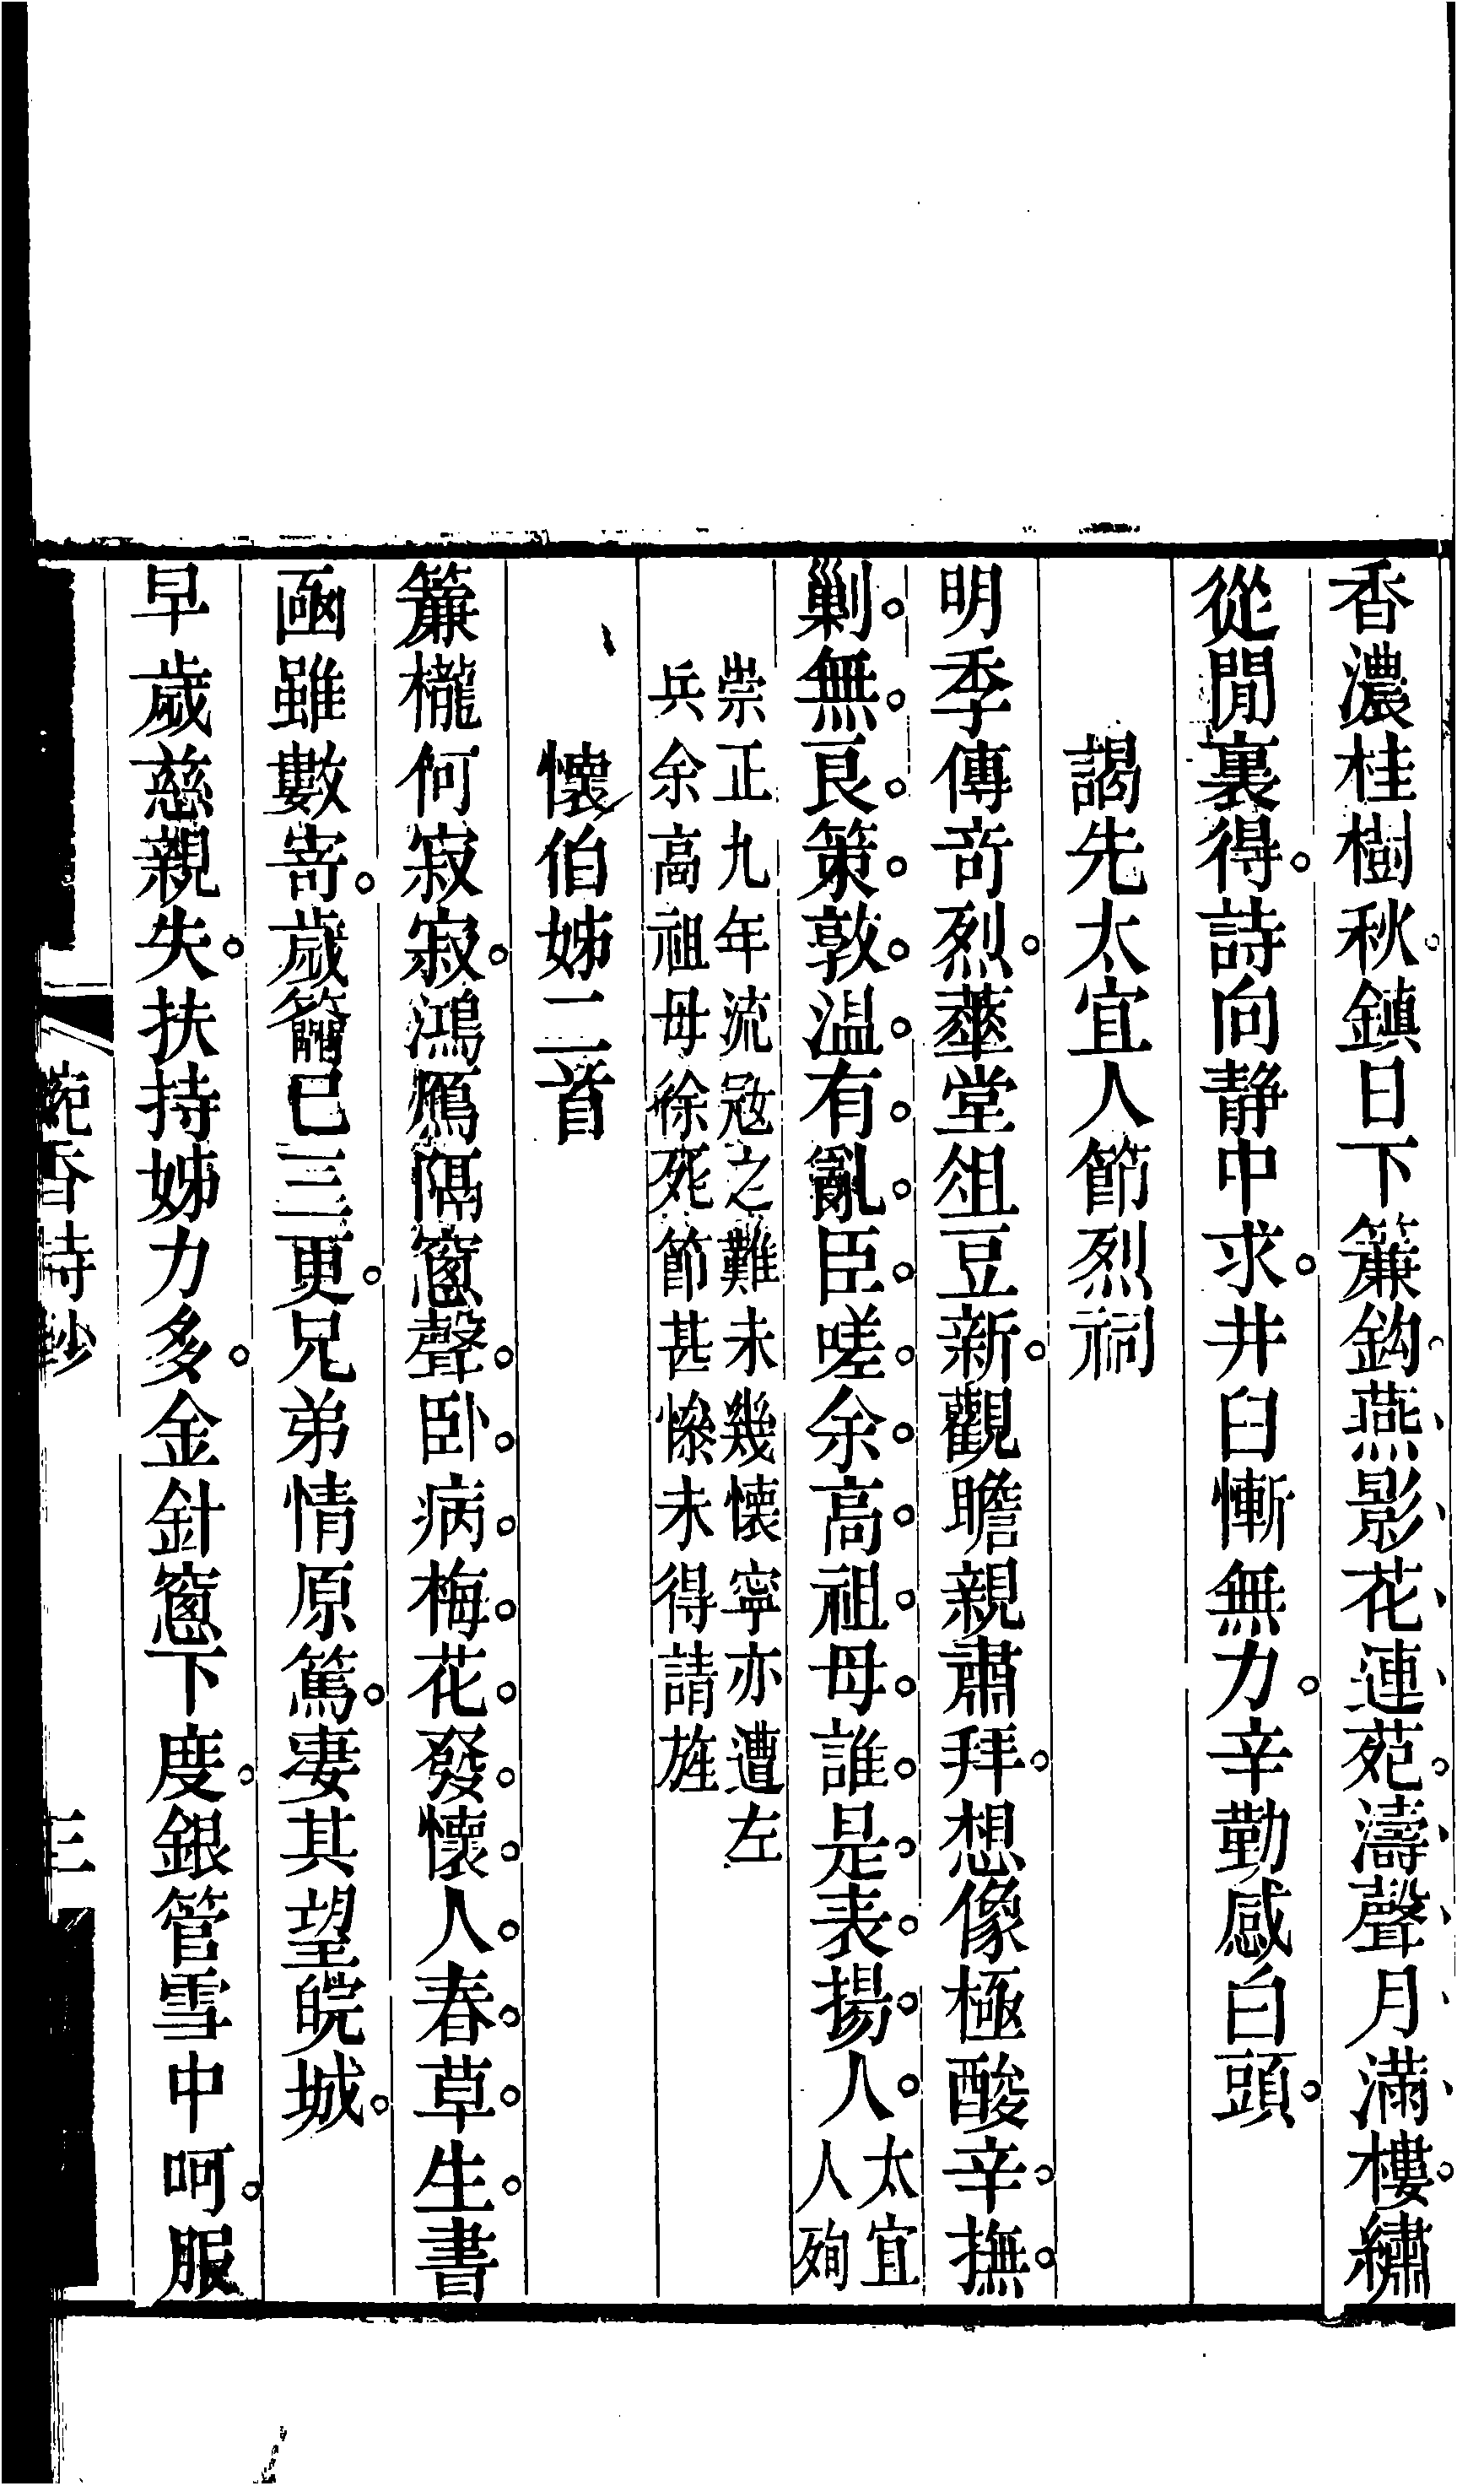 香濃桂樹秋。鎮日下簾鈎。燕影花連苑。濤聲月滿樓。繡
從閒裏得。詩向靜中求。井臼慚無力。辛勤感白頭。
謁先太宜人節烈祠
明季傳奇烈。華堂俎豆新。觀瞻親肅拜。想像極酸辛。撫
剿無良策。敦溫有亂臣。嗟余高祖母。誰是表揚人。太宜人殉
崇正九年流寇之難未幾懷寧亦遭左
兵余高祖母徐死節甚慘未得請旌
懷伯姊二首
簾櫳何寂寂。鴻鴈隔窻聲。卧病梅花發。懷人春草生。書
凾雖數寄。歲籥已三更。兄弟情原篤。凄其望皖城。
早歲慈親失。扶持姊力多。金針窻下度。銀管雪中呵。服
香詩鈔
三